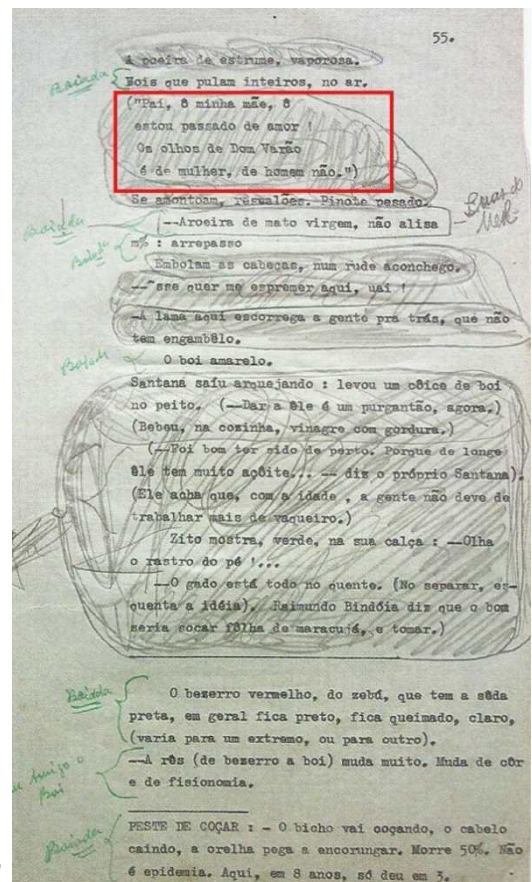 55.
A poeira de estrume, vaporosa.
Boiada
Bois que pulam inteiros, no ar.
("Pai, ô minha mãe, ô
estou passado de amor !
Os olhos de Dom Varão
é de mulher, de homem não.")
Se amontoam, resvalões. Pinote pesado.
Boiada
(--Aroeira de mato virgem, não alisa
m% : arrepasso
Embolam as cabeças, num rude aconchego.
sse quer me espremer aqui, uai !
-A lama aqui escorrega a gente pra trás, que não
tem engambêlo.
Boiada
O boi amarelo.
Santana saíu arquejando : levou um côice de boi
no peito. (--Dar a êle é um purgantão, agora.)
(Bebeu, na cozinha, vinagre com gordura.)
(--Foi bom ter sido de perto. Porque de longe
êle tem muito açôite... -- diz o próprio Santana).
(Ele acha que, com a idade , a gente não deve de
trabalhar mais de vaqueiro.)
Zito mostra, verde, na sua calça : --Olha
o rastro do pé !...
--O gado está todo no quente. (No separar, es-
quenta a idéia). Raimundo Bindóia diz que o bom
seria socar fôlha de maracujá, e tomar.)
Boiada
O bezerro vermelho, do zebú, que tem a sêda
preta, em geral fica preto, fica queimado, claro,
(varia para um extremo, ou para outro).
--A rês (de bezerro a boi) muda muito. Muda de côr
e de fisionomia.
amigo o
Boi
PESTE DE COÇAR : - O bicho vai coçando, o cabelo
Boiada
caindo, a orelha pega a encorungar. Morre 50%. Não
é epidemia. Aqui, em 8 anos, só deu em 3.